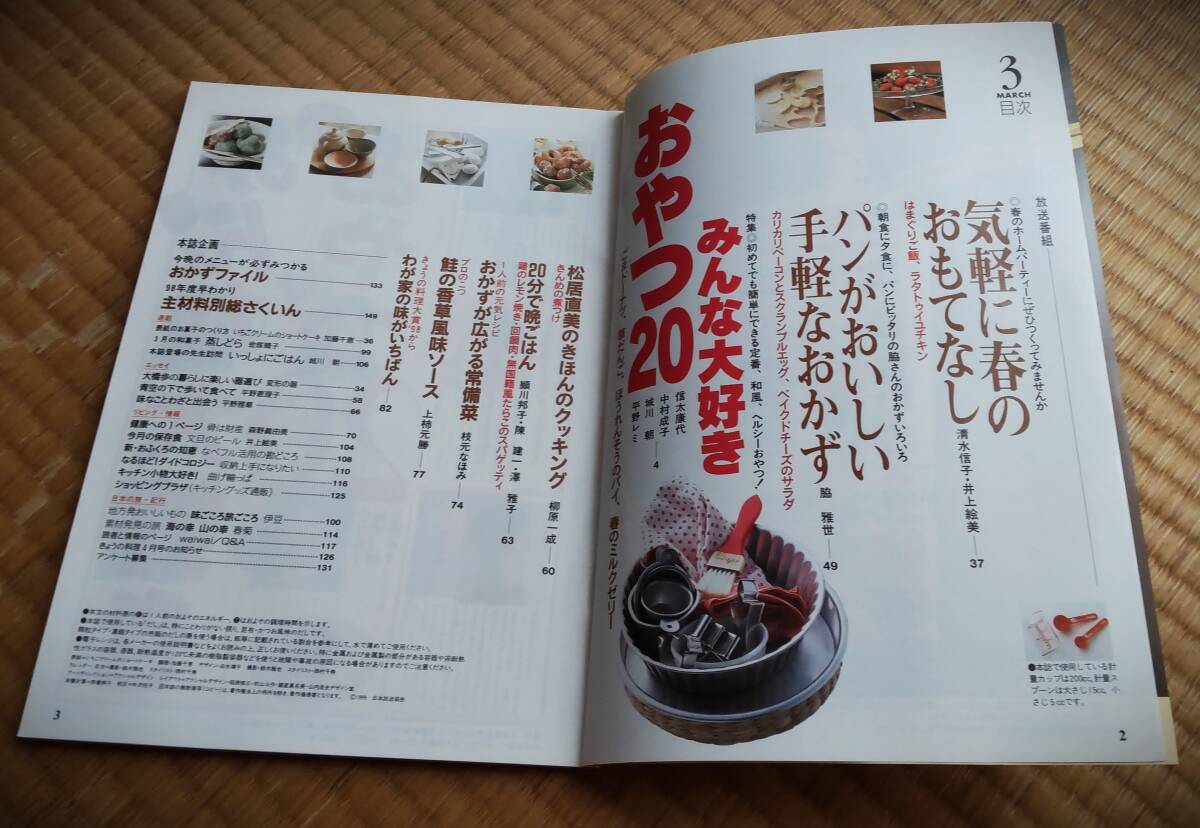 3
MARCH
目次
放送番組
◎春のホームパーティーにぜひつくってみませんか
気軽に春の
おもてなし
清水信子・井上絵美
37
はまぐりご飯、ラタトゥイユチキン
◎朝食に夕食に、パンにピッタリの脇さんのおかずいろいろ
パンがおいしい
手軽なおかず
脇 雅世
49
カリカリベーコンとスクランブルエッグ、ベイクドチーズのサラダ
特集◎初めてでも簡単にできる定番、和風、ヘルシーおやつ!
みんな大好き
おやつ20
信太康代
中村成子
城川 朝
平野レミ
4
ほうれんそうのパイ、春のミルクゼリー
●本誌で使用している計
量カップは200cc、計量ス
プーンは大さじ15cc、小
さじ5ccです。
2
松居直美のきほんのクッキング
柳原一成
60
きんめの煮つけ
20分で晩ごはん
顓川邦子・陳 建一・澤 雅子
63
鶏のレモン焼き・回鍋肉・無国籍風たらこのスパゲッティ
1人前の元気レシピ
おかずが広がる常備菜
枝元なほみ
74
プロのこつ
鮭の香草風味ソース
上柿元勝
77
きょうの料理大賞'98から
わが家の味がいちばん
82
本誌企画
今晩のメニューが必ずみつかる
おかずファイル
133
'98年度早わかり
主材料別総さくいん
149
連載
表紙のお菓子のつくり方 いちごクリームのショートケーキ 加藤千恵 36
3月の和菓子 蒸しどら 金塚晴子 99
本誌登場の先生訪問 いっしょにごはん 城川 朝 106
エッセイ
大橋歩の暮らしに楽しい器選び 変形の器 34
青空の下で歩いて食べて 平野恵理子 58
味なことわざと出会う 平野雅章 66
リビング・情報
健康への1ページ 骨は財産 森野眞由美 70
今月の保存食 文旦のピール 井上絵美 104
新・おふくろの知恵 なべフル活用の勘どころ 108
なるほど!ダイドコロジー 収納上手になりたい 110
キッチン小物大好き! 曲げ輪っぱ 116
ショッピングプラザ(キッチングッズ通販) 125
日本の旅・紀行
地方発おいしいもの 味ごころ旅ごころ 伊豆 100
素材発見の旅 海の幸 山の幸 春菊 114
読者と情報のページ waiwai/Q&A 117
きょうの料理4月号のお知らせ 126
アンケート募集 131
●本文の材料表の●は1人前のおよそのエネルギー、●はおよその調理時間を示します。
●本誌で使用している「だし」は、特にことわりがない限り、昆布・かつお風味のだしです。
3